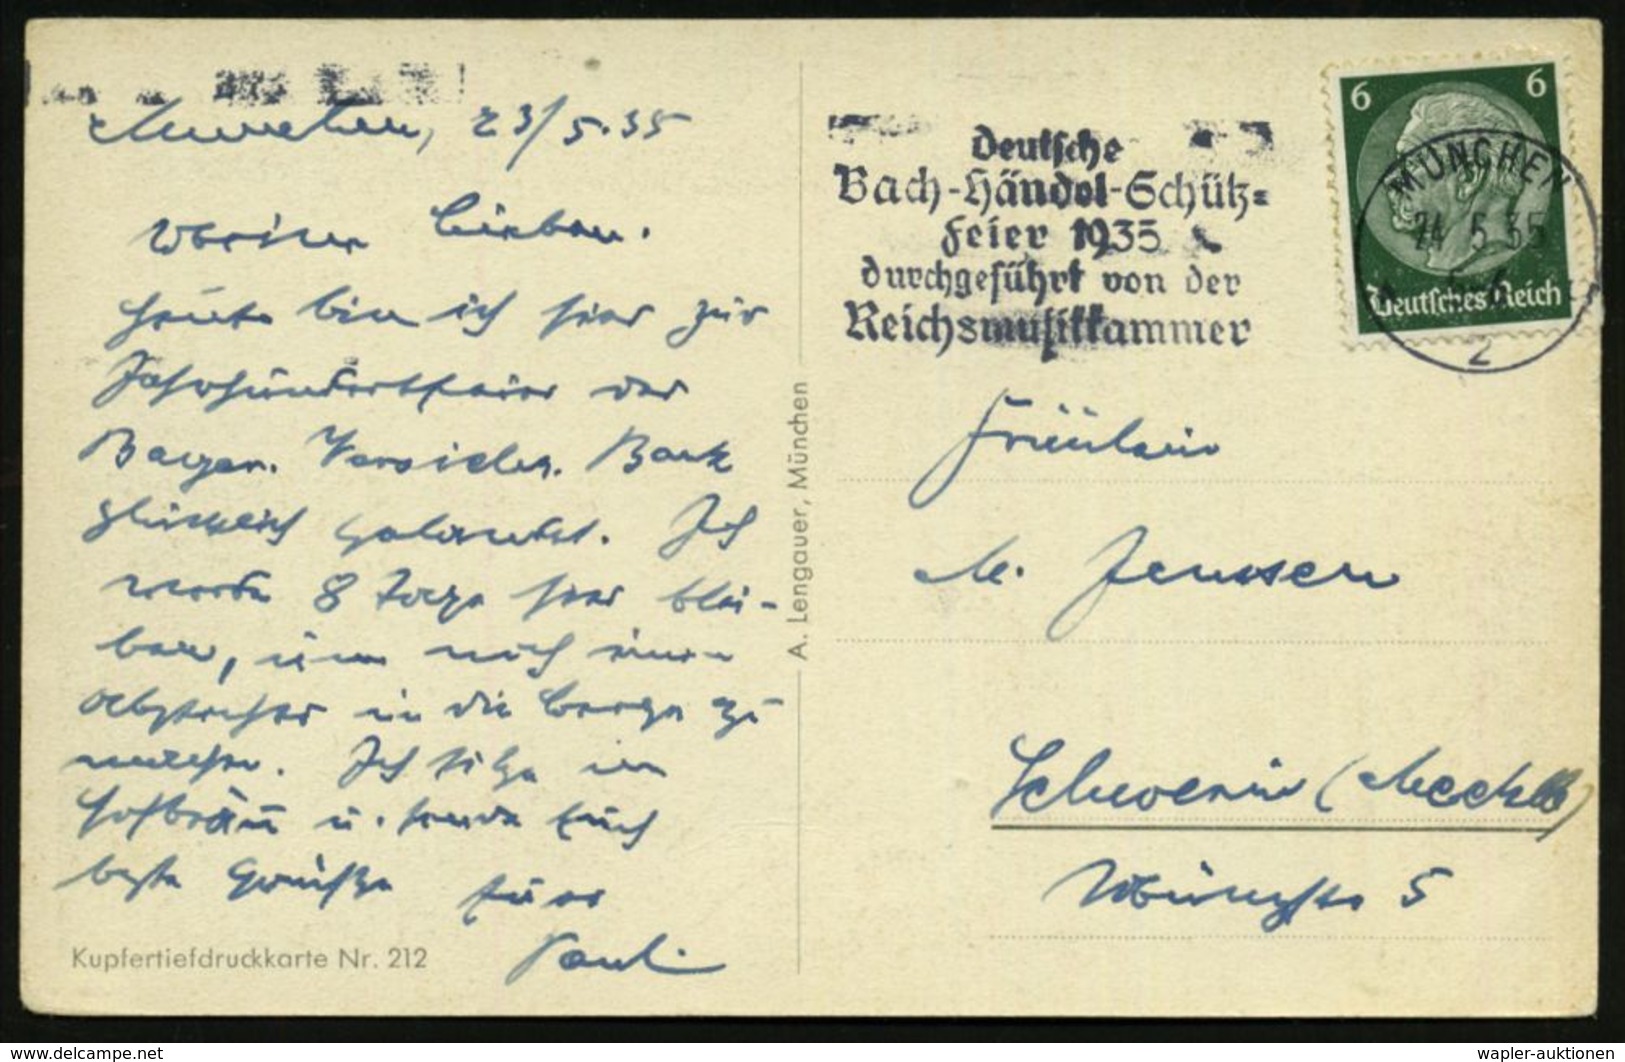 München, 23/5.35
Meine Lieben.
Heute bin ich hier zur
Jahrhundertfeier der
Bayer. Versicher. Bank
glücklich gelandet. Ich
werde 8 Tage hier blei-
ben, um noch einen
Abstecher in die Berge zu
machen. Ich sitze im
Hofbräu u. sende Euch
beste Grüße Euer
Kupfertiefdruckkarte Nr. 212
A. Lengauer, München
Deutsche
Bach-Händel-Schütz=
Feier 1935
durchgeführt von der
Reichsmusikkammer
6 6
MÜNCHEN
24 5 35
5-6
2
Deutsches Reich
Fräulein
M. Jenssen
Schwerin (Meckl)
5
wapler-auktionen
delcampe.net